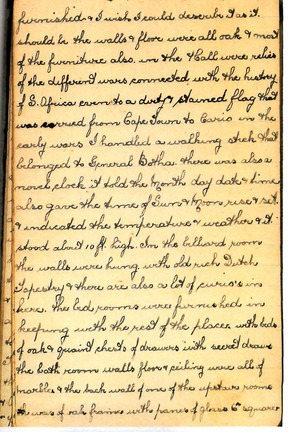 furnished & I wish I could describe it as it
should be the walls & floor were all oak & most
of the furniture also. in the Hall were relics
of the different wars connected with the history
of S. Africa even to a dirty & stained flag that
was carried from Cape Town to Cario in the
early wars I handled a walking stick that
belonged to General Botha. there was also a
novel clock it told the Month day date & time
also gave the time of Sun & Moon rise & set.
& indicated the temperature & weather & it
stood about 10 ft. high. In the billiard room
the walls were hung with old rich Dutch
Tapestry & there are also a lot of curio's in
here. the bed rooms were furnished in
keeping with the rest of the place. with beds
of oak & quaint chests of drawers with secret draws
the bath room walls floor & ceiling were all of
marble & the back wall of one of the upstair rooms
was of oak frame with panes of glass 6" square